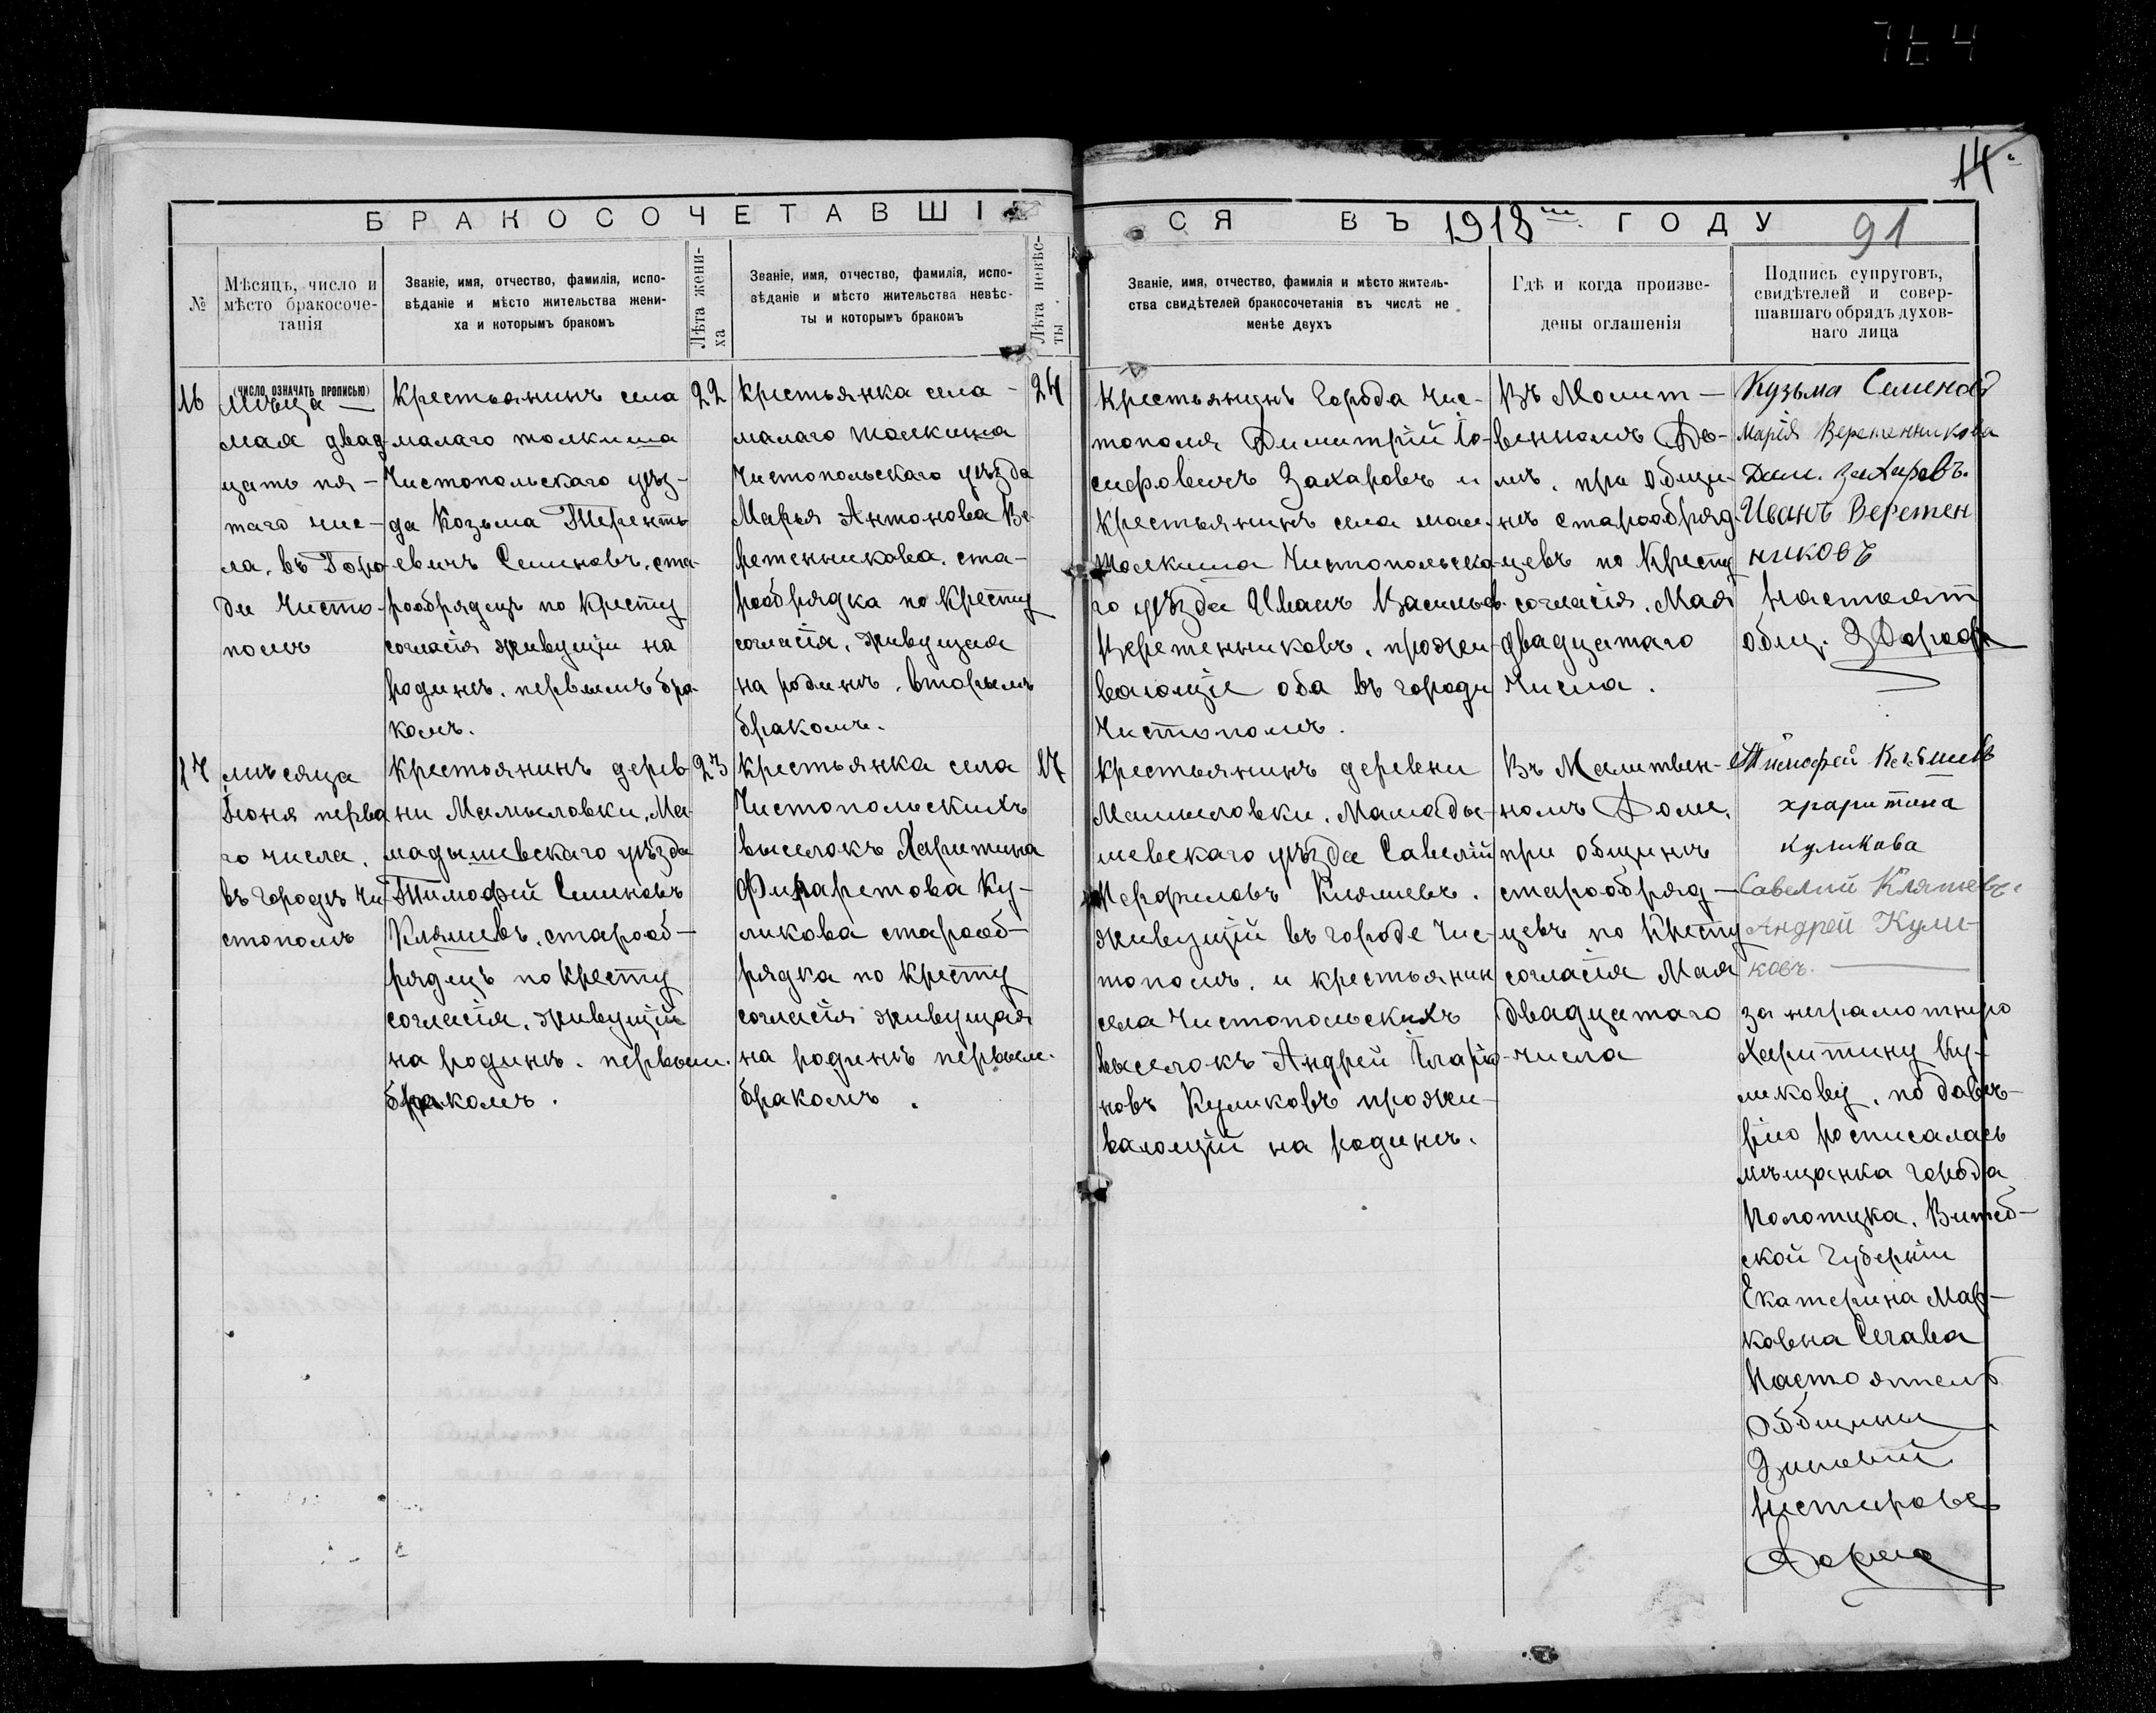 14
БРАКОСОЧЕТАВШІЕСЯ ВЪ 1918 ГОДУ
91
№
Мѣсяцъ, число и
мѣсто бракосоче-
танія
(ЧИСЛО ОЗНАЧАТЬ ПРОПИСЬЮ)
Званіе, имя, отчество, фамилія, испо-
вѣданіе и мѣсто жительства жени-
ха и которымъ бракомъ
Лѣта жени-
ха
Званіе, имя, отчество, фамилія, испо-
вѣданіе и мѣсто жительства невѣс-
ты и которымъ бракомъ
Лѣта невѣс-
ты
Званіе, имя, отчество, фамилія и мѣсто житель-
ства свидѣтелей бракосочетанія въ числѣ не
менѣе двухъ
Гдѣ и когда произве-
дены оглашенія
Подпись супруговъ,
свидѣтелей и совер-
шавшаго обрядъ духов-
наго лица
16
мая двад-
цать пя-
таго чис-
ла, въ Горо-
де Чисто-
полѣ
Крестьянинъ села
малаго толкиша
Чистопольскаго уѣз-
да Козьма Теренть-
евичъ Семеновъ, ста-
рообрядецъ по Кресту
согласія живущій на
родинѣ. первымъ бра-
комъ.
22
крестьянка села
малаго толкиша
Чистопольскаго уѣзда
Марья Антонова Ве-
ретенникова. ста-
рообрядка по Кресту
согласія, живущая
на родинѣ, вторымъ
бракомъ.
24
Крестьянинъ Города Чис-
тополя Димитрій Іо-
сифовичъ Захаровъ и
крестьянинъ села мал.
толкиша Чистопольска-
го уѣзда Иванъ Васильев.
Веретенниковъ, прожи-
вающіе оба въ городе
Чистополѣ.
Въ Молит-
венномъ До-
мѣ, при общи-
нѣ старообряд-
цевъ по Кресту
согласія, Мая
двадцатаго
числа.
Кузьма Семеновъ
Марія Веретенникова
Дим. Захаровъ.
Иванъ Веретен
никовъ
Настоят
общ.
17
мѣсяца
Іюня перва-
го числа,
въ городѣ Чи-
стополѣ
крестьянинъ дерев-
ни Мамыловки, Ма-
мадышевскаго уѣзда
Тимофей Семеновъ
Кляшевъ, старооб-
рядецъ по Кресту
согласія, живущій
на родинѣ. первым.
бракомъ.
23
крестьянка села
Чистопольскихъ
выселокъ Харитина
Филаретова Ку-
ликова старооб-
рядка по кресту
согласія живущая
на родинѣ первым.
бракомъ.
17
крестьянинъ деревни
Мамыловки, Мамады-
шевскаго уѣзда Савелій
Кляшевъ.
живущій въ городе Чис-
тополѣ. и крестьянин
села Чистопольскихъ
выселокъ Андрей Иларіо-
новъ Куликовъ прожи-
вающій на родинѣ.
Въ Малитвен-
номъ Доме,
при общинѣ
старообряд-
цевъ по Кресту
согласія Мая
двадцатаго
числа
Тимофей Кляшевъ
храритина
куликова
Савелий Кляшевъ
Андрей Кули-
ковъ.
за неграмотную
Харитину Ку-
ликову, по давѣ-
рію росписалась
мѣщанка города
Полотцка, Витеб-
ской Губерніи
Екатерина Мар-
ковна
Настоятель
Общины
Зиновій